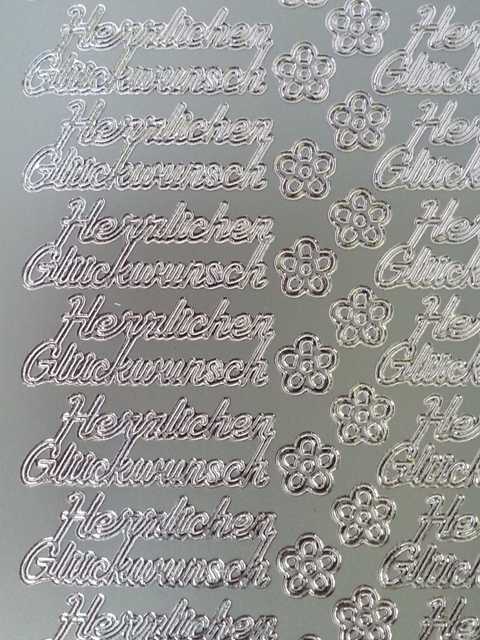 Herzlichen
Glückwunsch
Herzlichen
Glückwunsch
Herzlichen
Glückwunsch
Herzlichen
Glückwunsch
Herzlichen
Glückwunsch
Herzlichen
Glückwunsch
Herzlichen
He
Glück
He
Glück
He
Glück
He
Glück
He
Glück
He
Glück
He